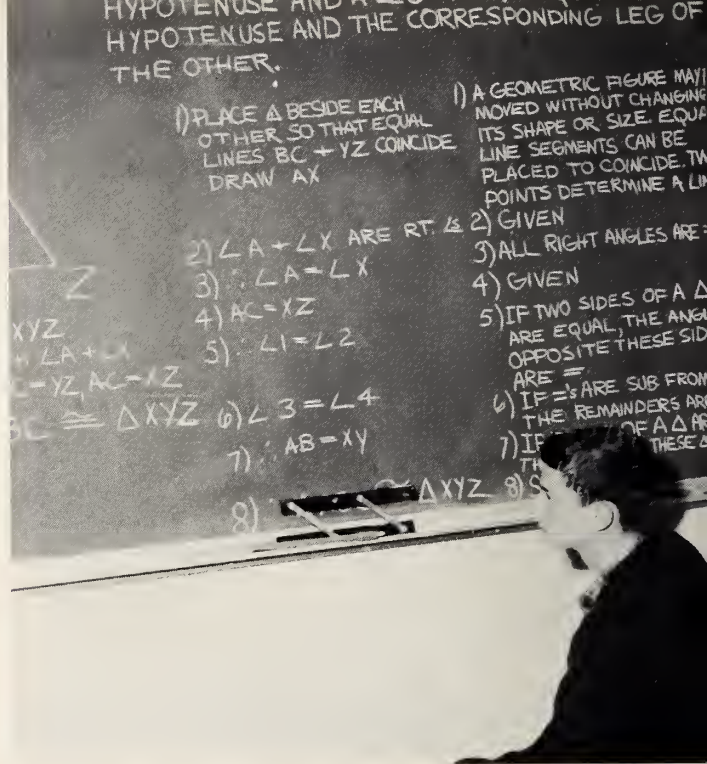 HYPOTENUSE AND A LEG
HYPOTENUSE AND THE CORRESPONDING LEG OF
THE OTHER.
1) PLACE Δ BESIDE EACH
OTHER SO THAT EQUAL
LINES BC + YZ COINCIDE
DRAW AX
2) ∠A + ∠X ARE RT. ∠S
3) ∴ ∠A = ∠X
4) AC = XZ
5) ∴ ∠1 = ∠2
6) ∠3 = ∠4
7) ∴ AB = XY
8) ΔXYZ
1) A GEOMETRIC FIGURE MAY
MOVED WITHOUT CHANGING
ITS SHAPE OR SIZE. EQUA
LINE SEGMENTS CAN BE
PLACED TO COINCIDE. TW
POINTS DETERMINE A LIN
2) GIVEN
3) ALL RIGHT ANGLES ARE =
4) GIVEN
5) IF TWO SIDES OF A Δ
ARE EQUAL, THE ANGL
OPPOSITE THESE SID
ARE =
6) IF ='S ARE SUB FROM
THE REMAINDERS ARE
7) IF OF A Δ AR
TH THESE Δ
8) S
Z
XYZ
∠A +
= YZ, AC = XZ
BC ≅ ΔXYZ